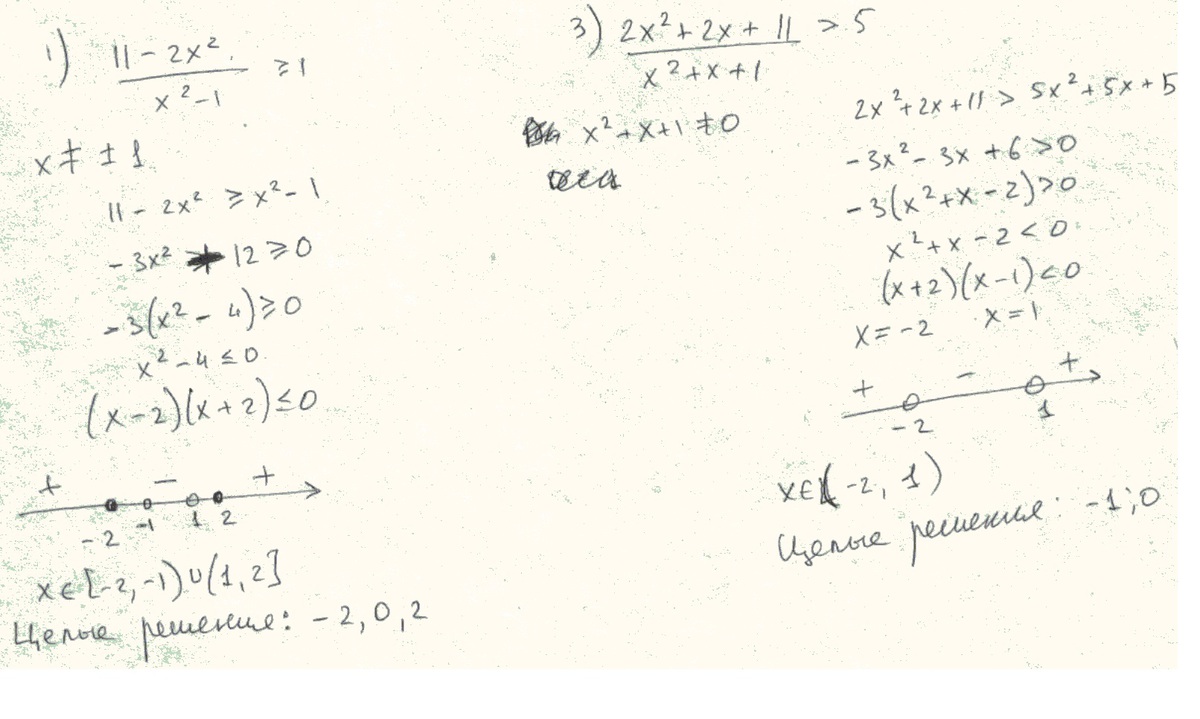 1) (11 - 2x²)/(x² - 1) ≥ 1
x ≠ ± 1
11 - 2x² ≥ x² - 1
-3x² + 12 ≥ 0
-3(x² - 4) ≥ 0
x² - 4 ≤ 0
(x - 2)(x + 2) ≤ 0
+ - +
-2 -1 1 2
x ∈ [-2, -1) ∪ (1, 2]
Целые решения: -2, 0, 2
3) (2x² + 2x + 11)/(x² + x + 1) > 5
x² + x + 1 ≠ 0
2x² + 2x + 11 > 5x² + 5x + 5
-3x² - 3x + 6 > 0
-3(x² + x - 2) > 0
x² + x - 2 < 0
(x + 2)(x - 1) < 0
x = -2 x = 1
+ - +
-2 1
x ∈ (-2, 1)
Целые решения: -1; 0